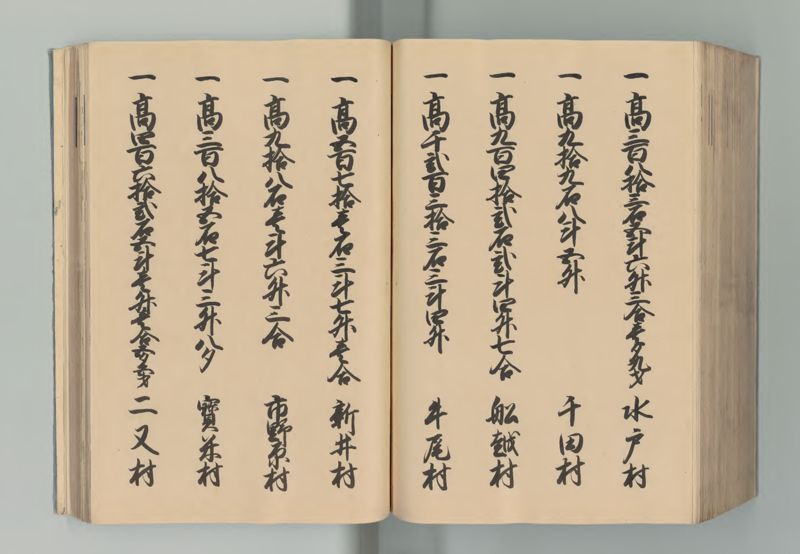 一 高三百八拾三石弐斗六升三合壱夕九才 水戸村
一 高九拾九石八斗五升 千田村
一 高九百四拾弐石弐斗四升七合 船越村
一 高千弐百三拾三石三斗四升 牛尾村
一 高五百七拾壱石三斗七升壱合 新井村
一 高九拾八石壱斗六升三合 市野原村
一 高三百八拾五石七斗三升八夕 寶米村
一 高四百六拾弐石五斗壱升壱合 二又村